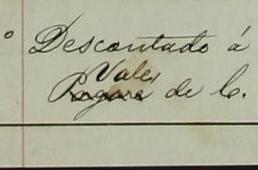 º Descontado á
Vales
Pagaré de C.